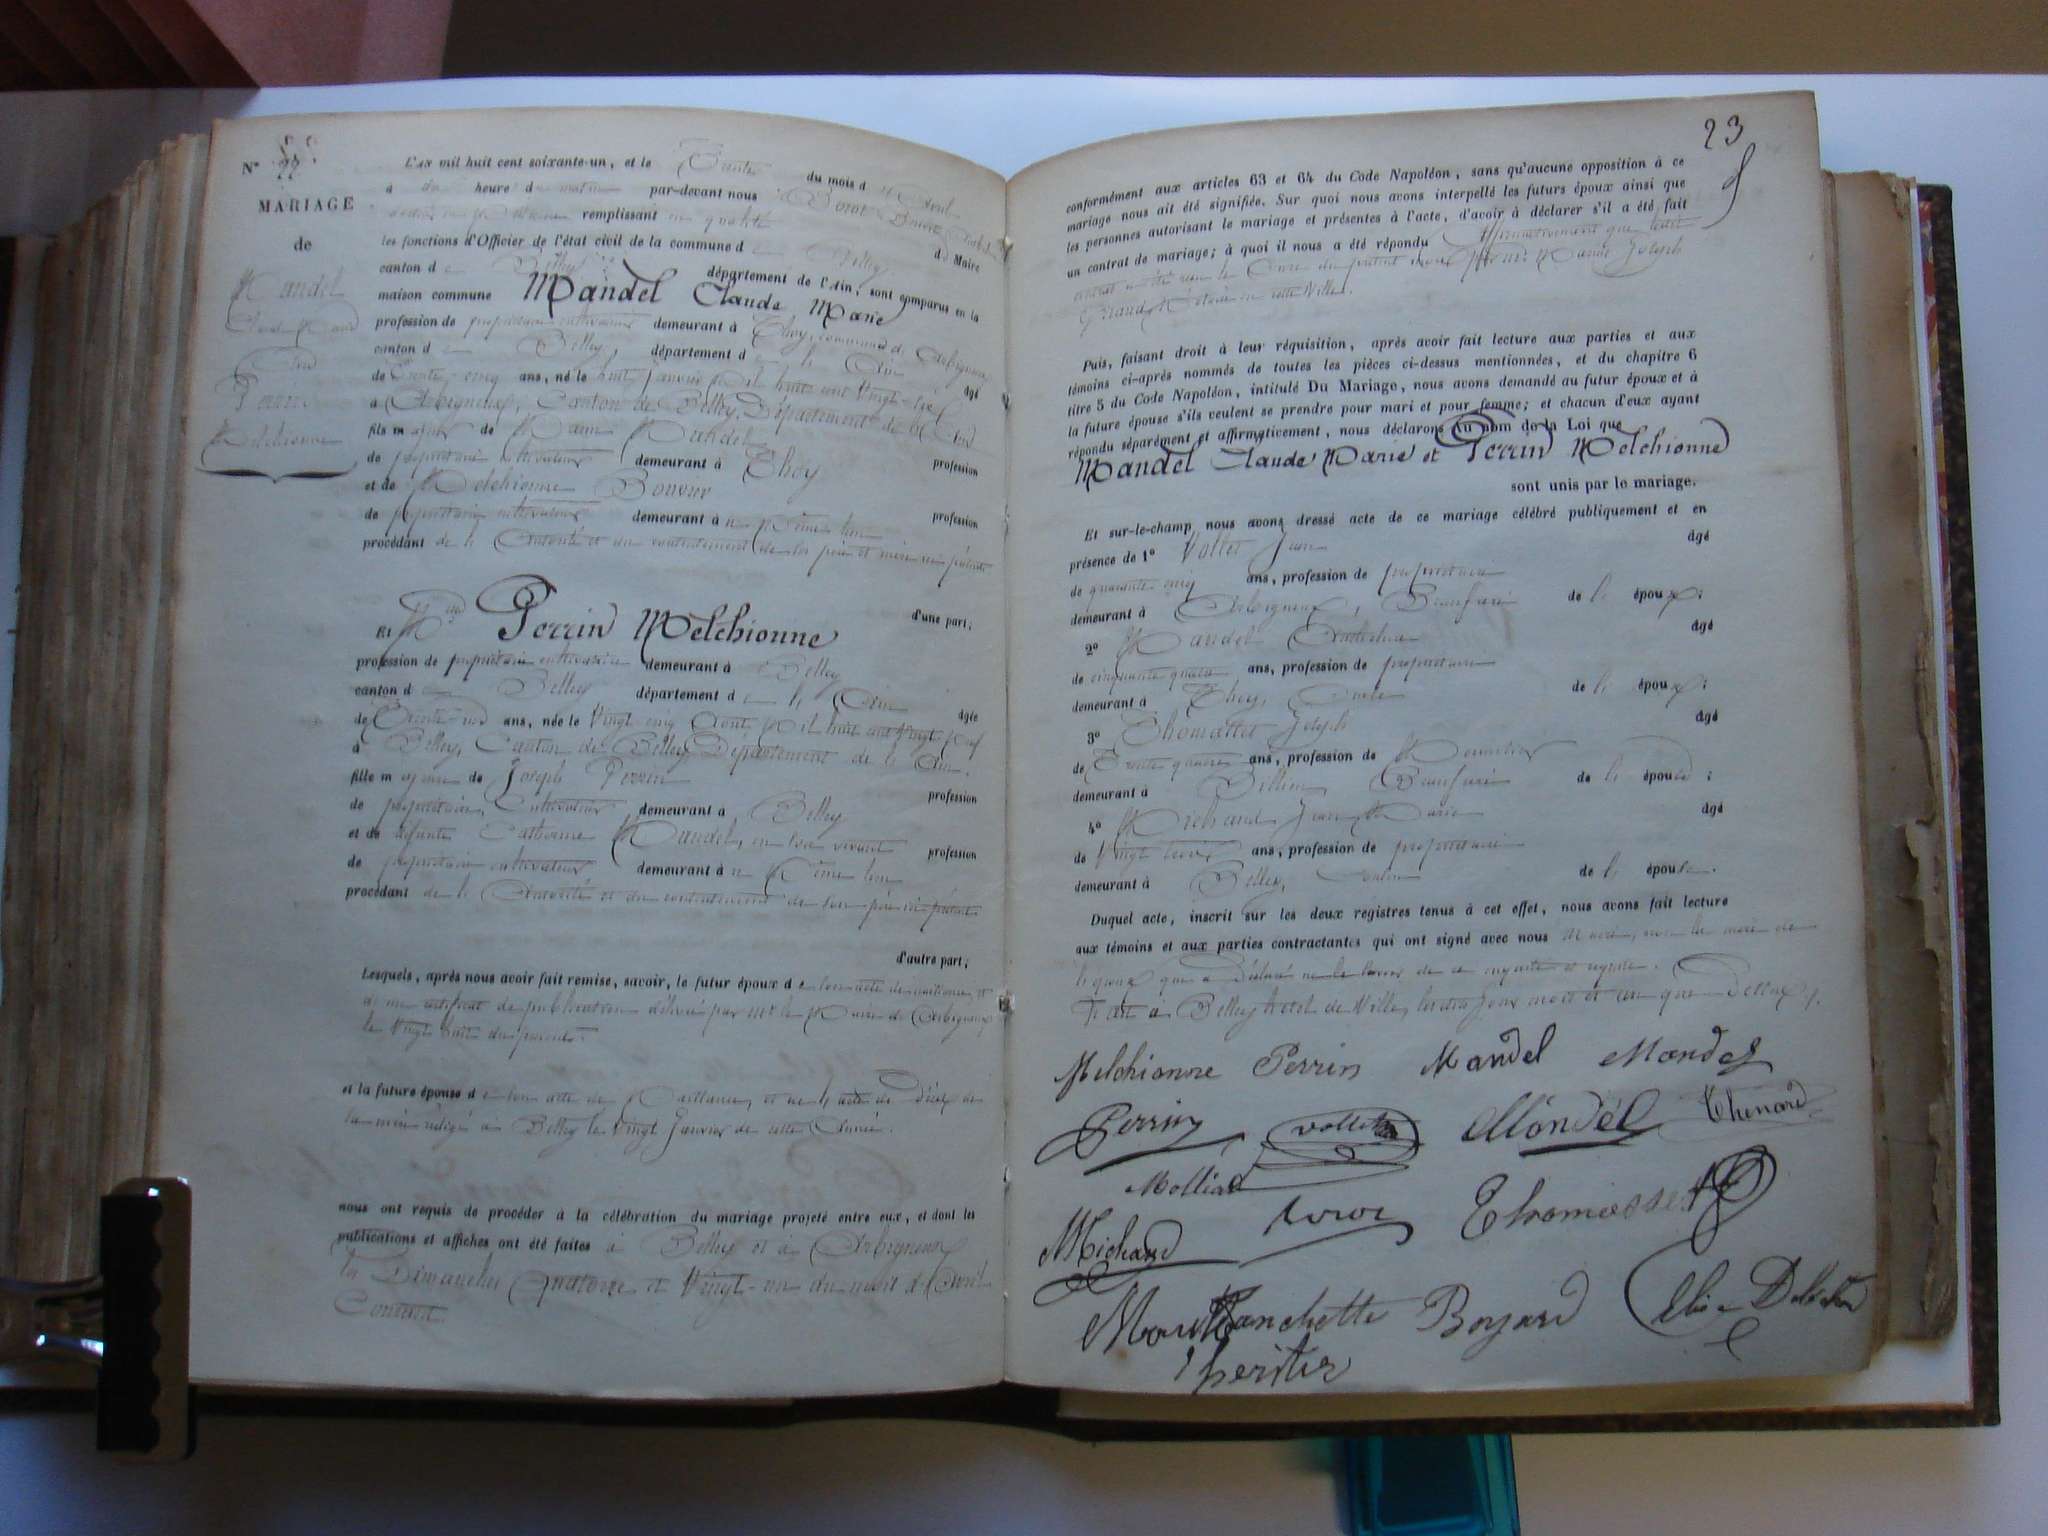 N° 22
MARIAGE
de
Mandel
Claude Marie
Et
Perrin
Melchionne
L'AN mil huit cent soixante-un, et le Trente du mois d'Avril
à dix heures du matin par-devant nous
remplissant en qualité
du Maire
les fonctions d'Officier de l'état civil de la commune de Belley
canton de Belley département de l'Ain, sont comparus en la
maison commune Mandel Claude Marie
profession de propriétaire cultivateur demeurant à Thoy, commune d'Arbigneux
canton de Belley, département de l'Ain âgé
de Trente cinq ans, né le huit Janvier Mil huit cent Vingt-six
à Arbigneux, Canton de Belley, Département de l'Ain
fils majeur de Mandel profession
de propriétaire cultivateur demeurant à Thoy
et de Melchionne profession
de propriétaire cultivateur demeurant à u Même lieu
procédant de l'Autorité et du consentement de ses père et mère ici présents
d'une part;
Et Mlle Perrin Melchionne
profession de propriétaire cultivatrice demeurant à Belley
canton de Belley département de l'Ain âgée
de Trente-un ans, née le Vingt-cinq Août Mil huit cent Vingt-Neuf
à Belley, Canton de Belley, Département de l'Ain.
fille majeure de Joseph Perrin profession
de propriétaire, Cultivateur demeurant à Belley
et de défunte Catherine Mandel, en son vivant profession
de propriétaire cultivateur demeurant à u Même lieu
procédant de l'Autorité et du consentement de son père ici présent
d'autre part;
Lesquels, après nous avoir fait remise, savoir, le futur époux de son acte de naissance, et
d'un certificat de publication délivré par Mr le Maire d'Arbigneux
le Vingt huit du présent.
et la future épouse de son acte de Naissance, et de l'acte de Décès de
sa mère rédigé à Belley le Vingt Janvier de cette Année.
nous ont requis de procéder à la célébration du mariage projeté entre eux, et dont les
publications et affiches ont été faites à Belley et à Arbigneux
les Dimanches Quatorze et Vingt-un du mois d'Avril
Courant.
23
conformément aux articles 63 et 64 du Code Napoléon, sans qu'aucune opposition à ce
mariage nous ait été signifiée. Sur quoi nous avons interpellé les futurs époux ainsi que
les personnes autorisant le mariage et présentes à l'acte, d'avoir à déclarer s'il a été fait
un contrat de mariage; à quoi il nous a été répondu affirmativement que ledit
contrat a été reçu le Onze du présent mois par Mr Joseph
Giraud, Notaire en cette Ville.
Puis, faisant droit à leur réquisition, après avoir fait lecture aux parties et aux
témoins ci-après nommés de toutes les pièces ci-dessus mentionnées, et du chapitre 6
titre 5 du Code Napoléon, intitulé Du Mariage, nous avons demandé au futur époux et à
la future épouse s'ils veulent se prendre pour mari et pour femme; et chacun d'eux ayant
répondu séparément et affirmativement, nous déclarons au nom de la Loi que
Mandel Claude Marie et Perrin Melchionne
sont unis par le mariage.
Et sur-le-champ nous avons dressé acte de ce mariage célébré publiquement et en
présence de 1° Vollet Jean âgé
de quarante cinq ans, profession de propriétaire
demeurant à Arbigneux, Beaufrère de l'époux;
2° Mandel Anthelme âgé
de cinquante quatre ans, profession de propriétaire
demeurant à Thoy, Oncle de l'époux;
3° Joseph âgé
de Trente quatre ans, profession de Menuisier
demeurant à Beaufrère de l'épouse;
4° Michaud Jean Marie âgé
de Vingt trois ans, profession de propriétaire
demeurant à Belley, Cousin de l'épouse.
Duquel acte, inscrit sur les deux registres tenus à cet effet, nous avons fait lecture
aux témoins et aux parties contractantes qui ont signé avec nous Maire, non la mère de
l'époux qui a Déclaré ne le savoir de ce enquise et requise.
Fait à Belley hôtel de Ville, lesdits jour mois et an que Dessus
Melchionne Perrin Mandel Mandel
Perrin Vollet Mandel Thenard
Mollias
Michaud
Marie Fanchette Boyard